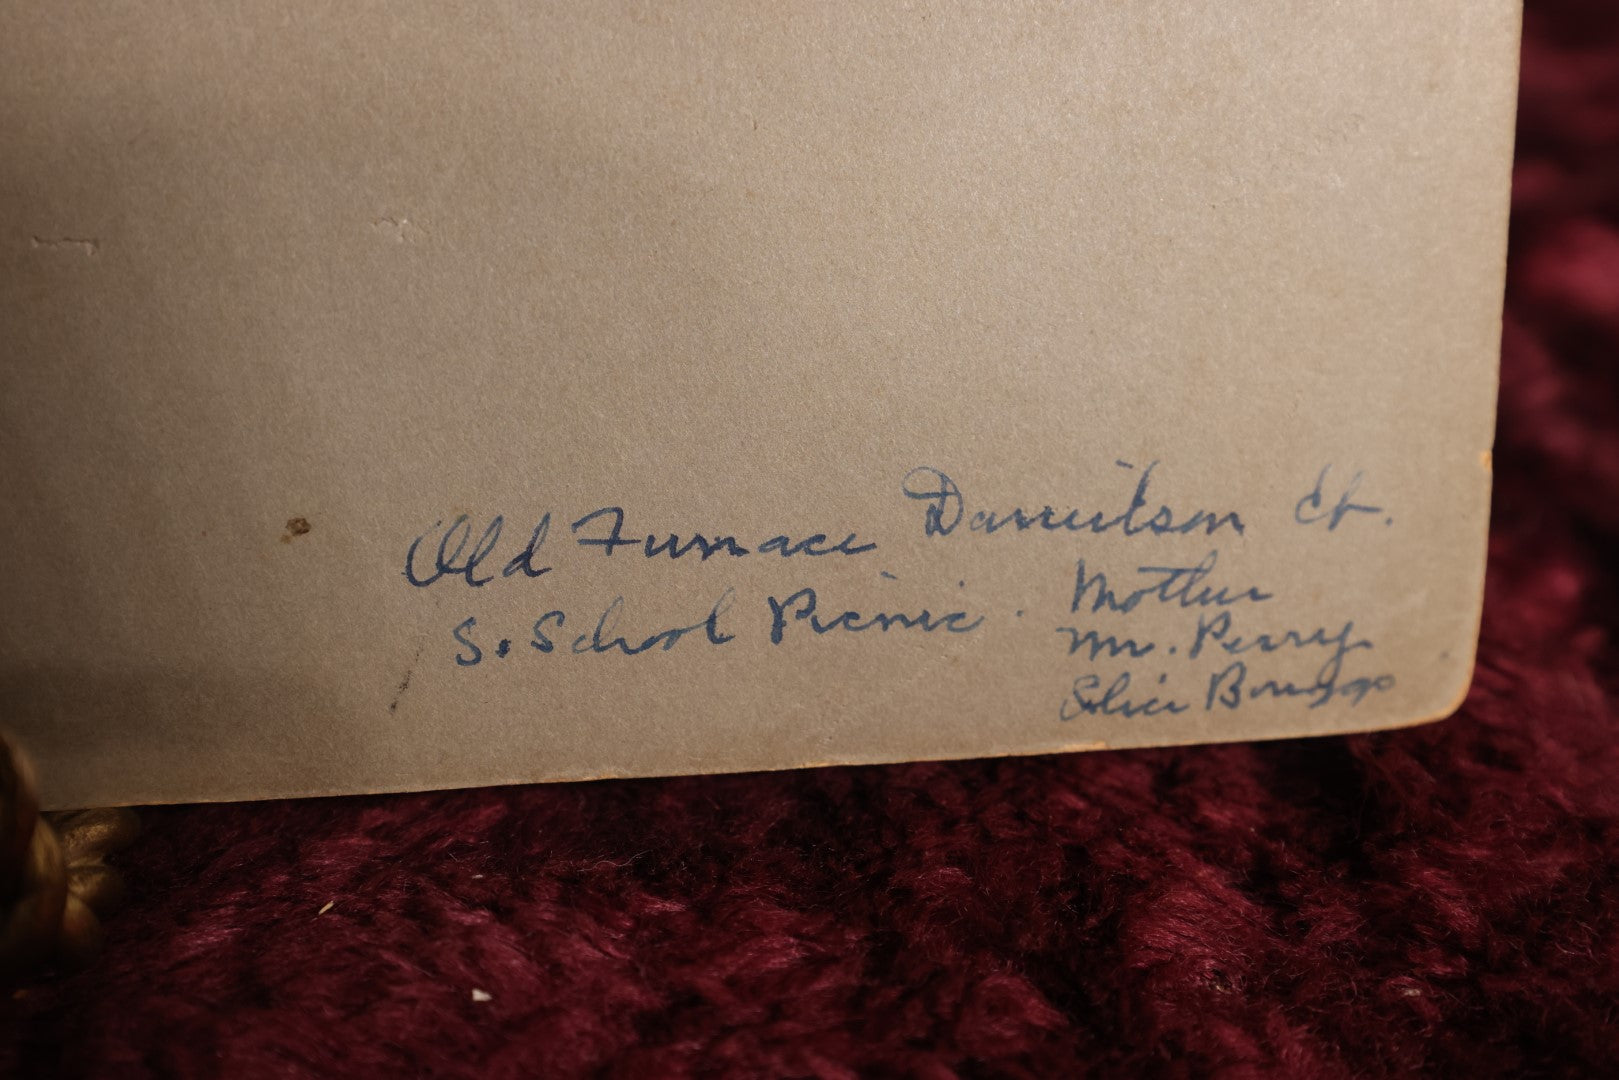 Old Furnace Danielson Ct.
S. School Picnic.
Mother
Mr. Perry
Alice Bruggs